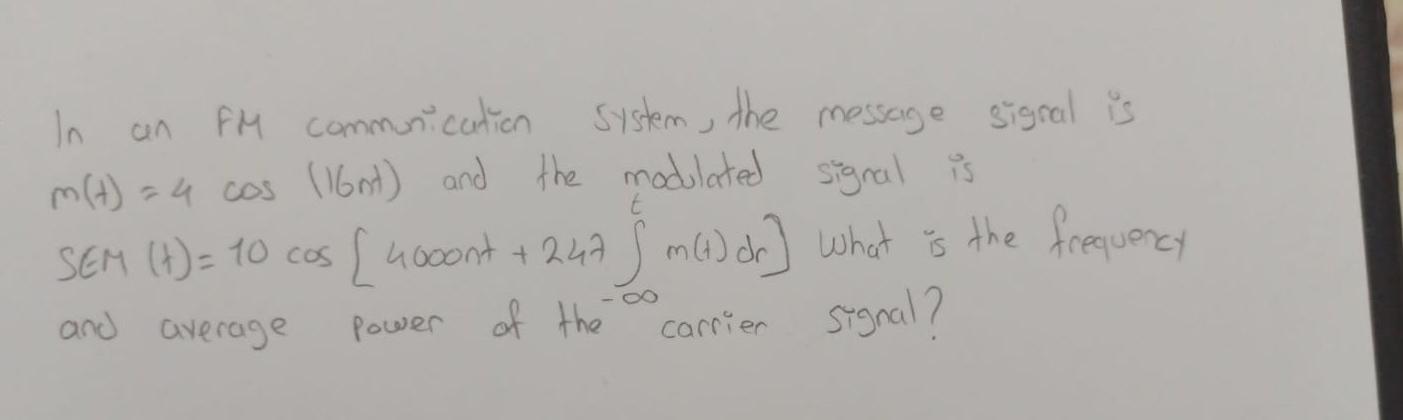 In an FM communication system, the message signal is
m(t) = 4 cos (16πt) and the modulated signal is
SFM (t) = 10 cos [4000πt + 24π ∫_{-∞}^{t} m(τ) dτ] What is the frequency
and average power of the carrier signal?